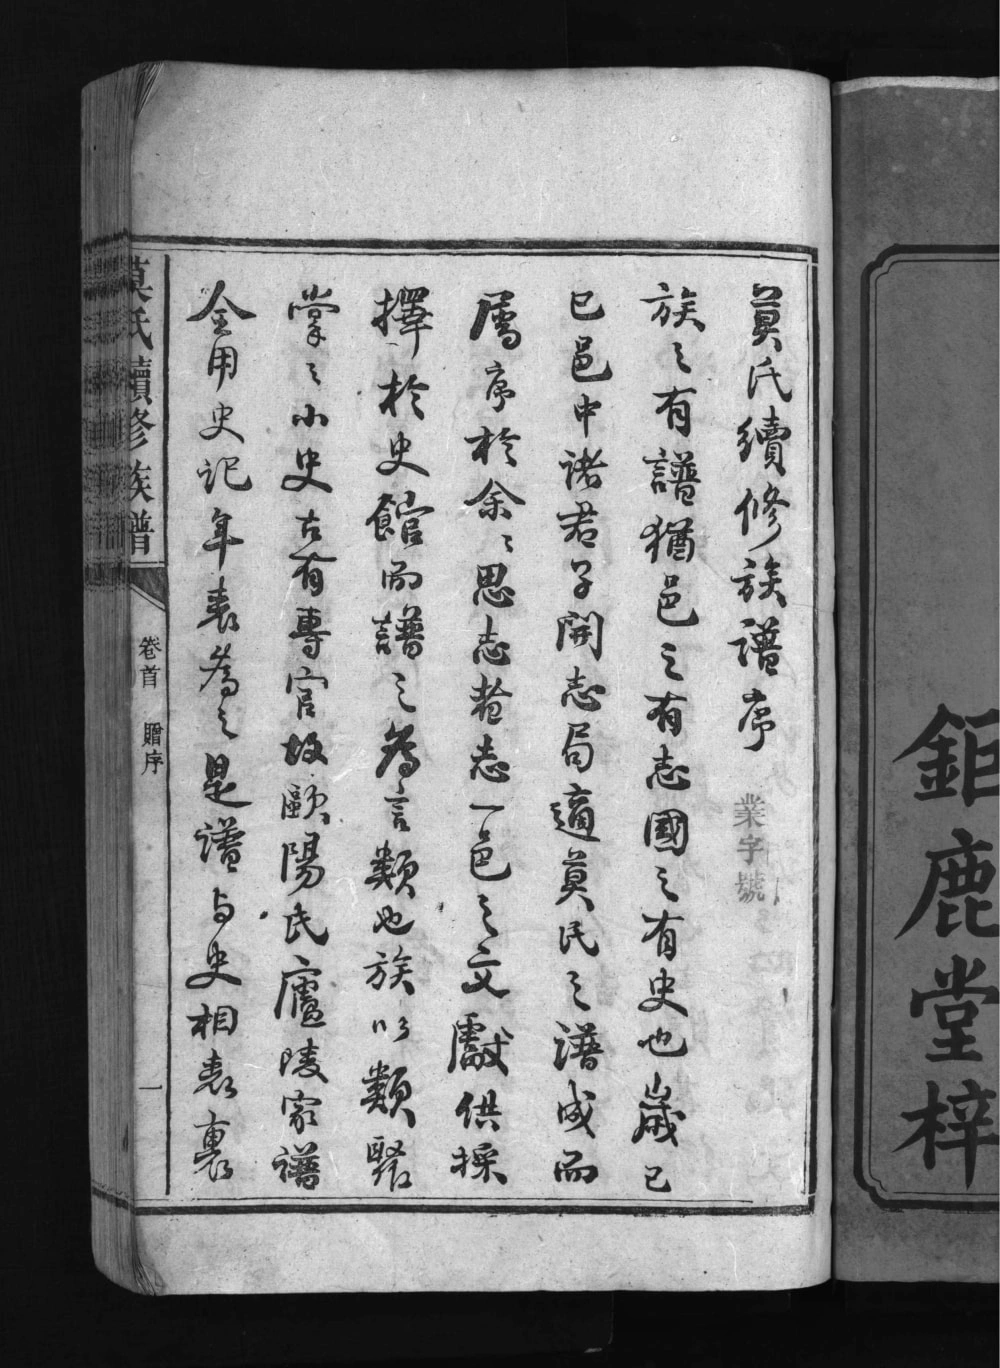 鉅鹿堂梓
莫氏續修族譜序
業字號
族之有譜猶邑之有志國之有史也歲己
巳邑中諸君子開志局適莫氏之譜成而
屬序於余〻思志者志一邑之文獻供採
擇於史館而譜之為言類也族以類聚
掌之小史古有專官故歐陽氏廬陵家譜
全用史記年表為之是譜与史相表裏
莫氏續修族譜
卷首 贈序
一